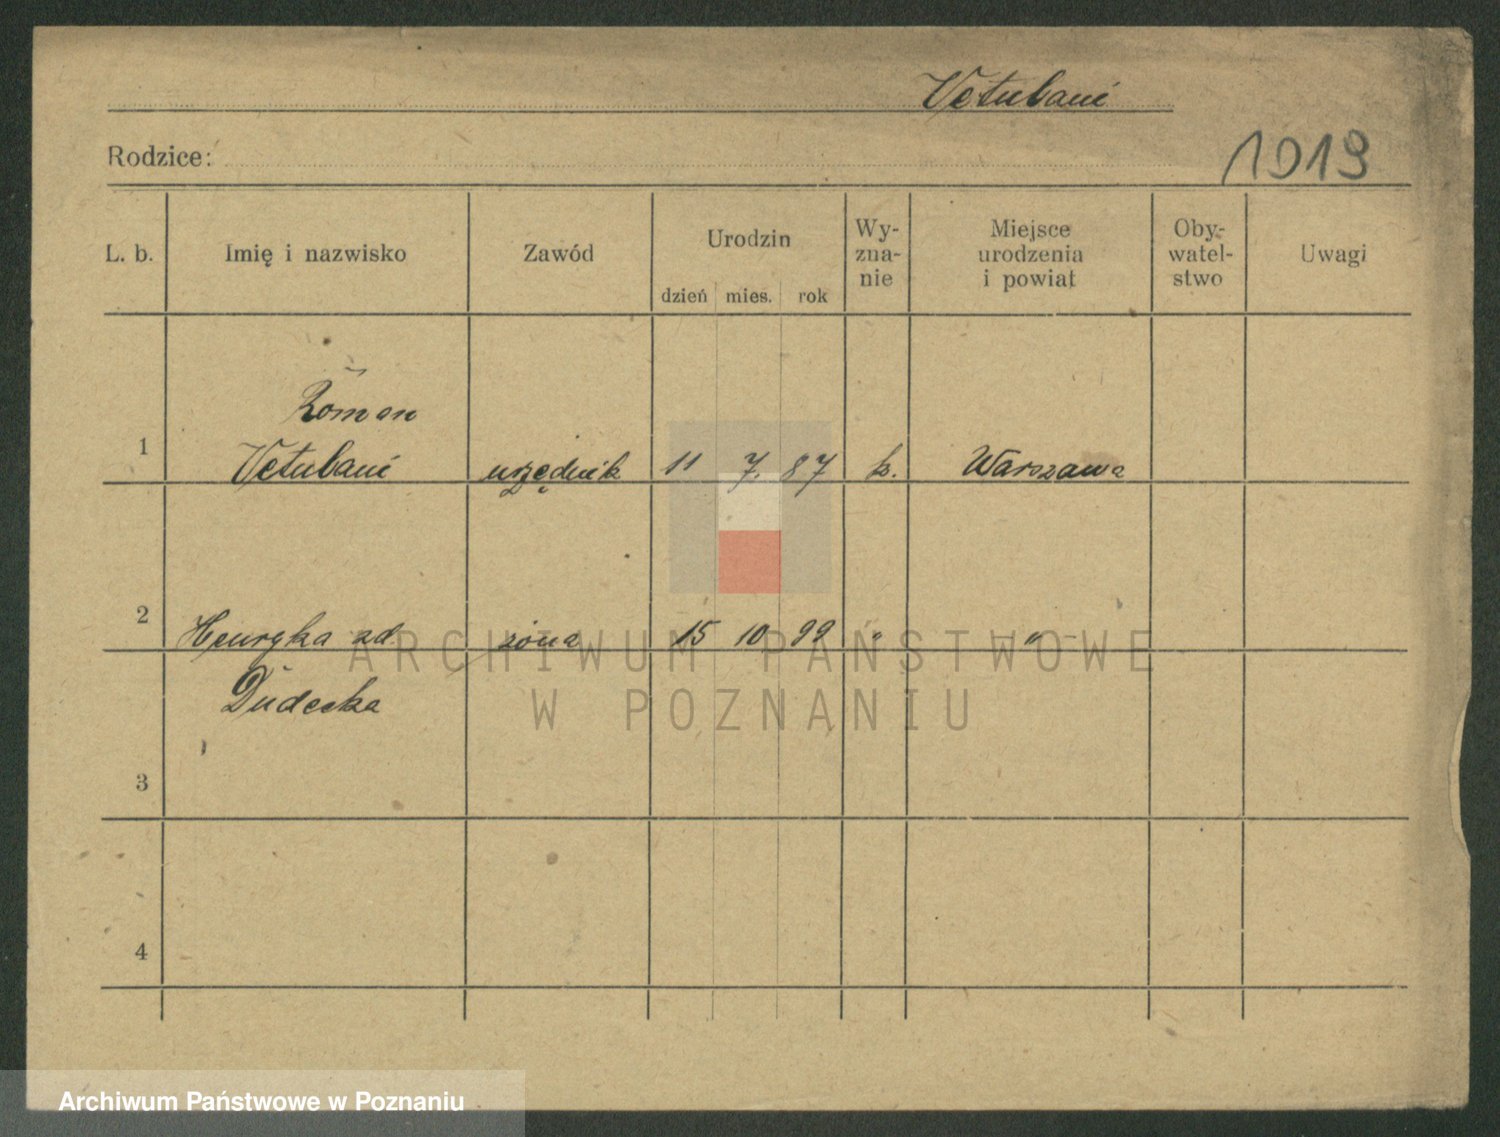 Vetulani
Rodzice:
1919
L. b.
Imię i nazwisko
Zawód
Urodzin
dzień mies. rok
Wy-
zna-
nie
Miejsce
urodzenia
i powiat
Oby-
watel-
stwo
Uwagi
Roman
1 Vetulani urzędnik 11 7. 87 k. Warszawa
2 Henryka zd. żona 15 10 99 " — " —
Dudecka
3
4
ARCHIWUM PAŃSTWOWE
W POZNANIU
Archiwum Państwowe w Poznaniu